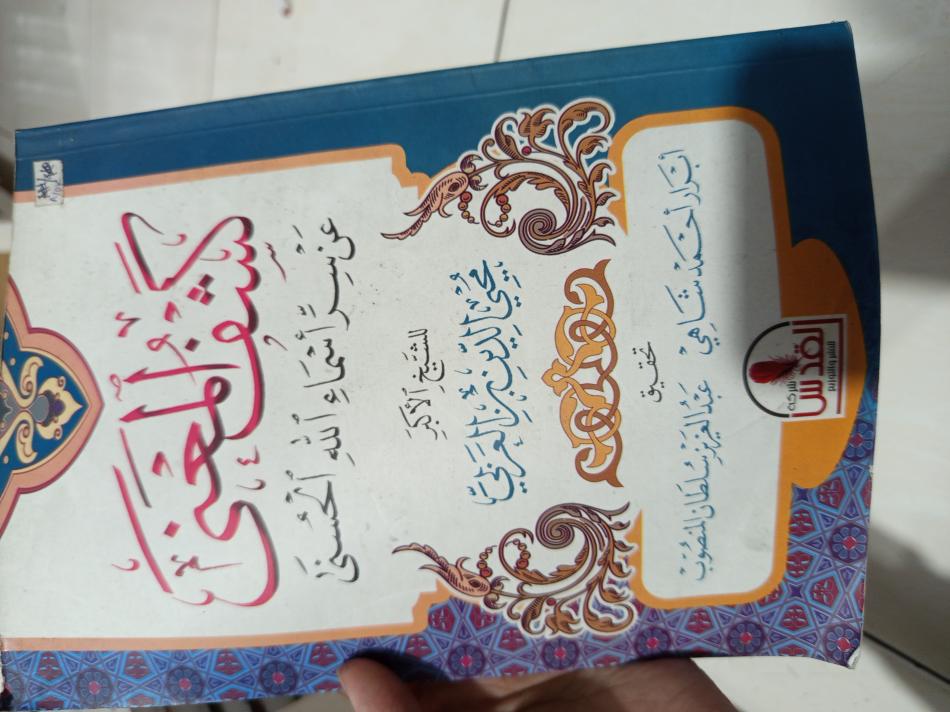 كشف المعنى
عن سر أسماء الله الحسنى
للشيخ الأكبر
محيي الدين بن العربي
تحقيق
أبرار أحمد شاهي عبد العزيز سلطان المنصوب
شركة
القدس
للنشر والتوزيع